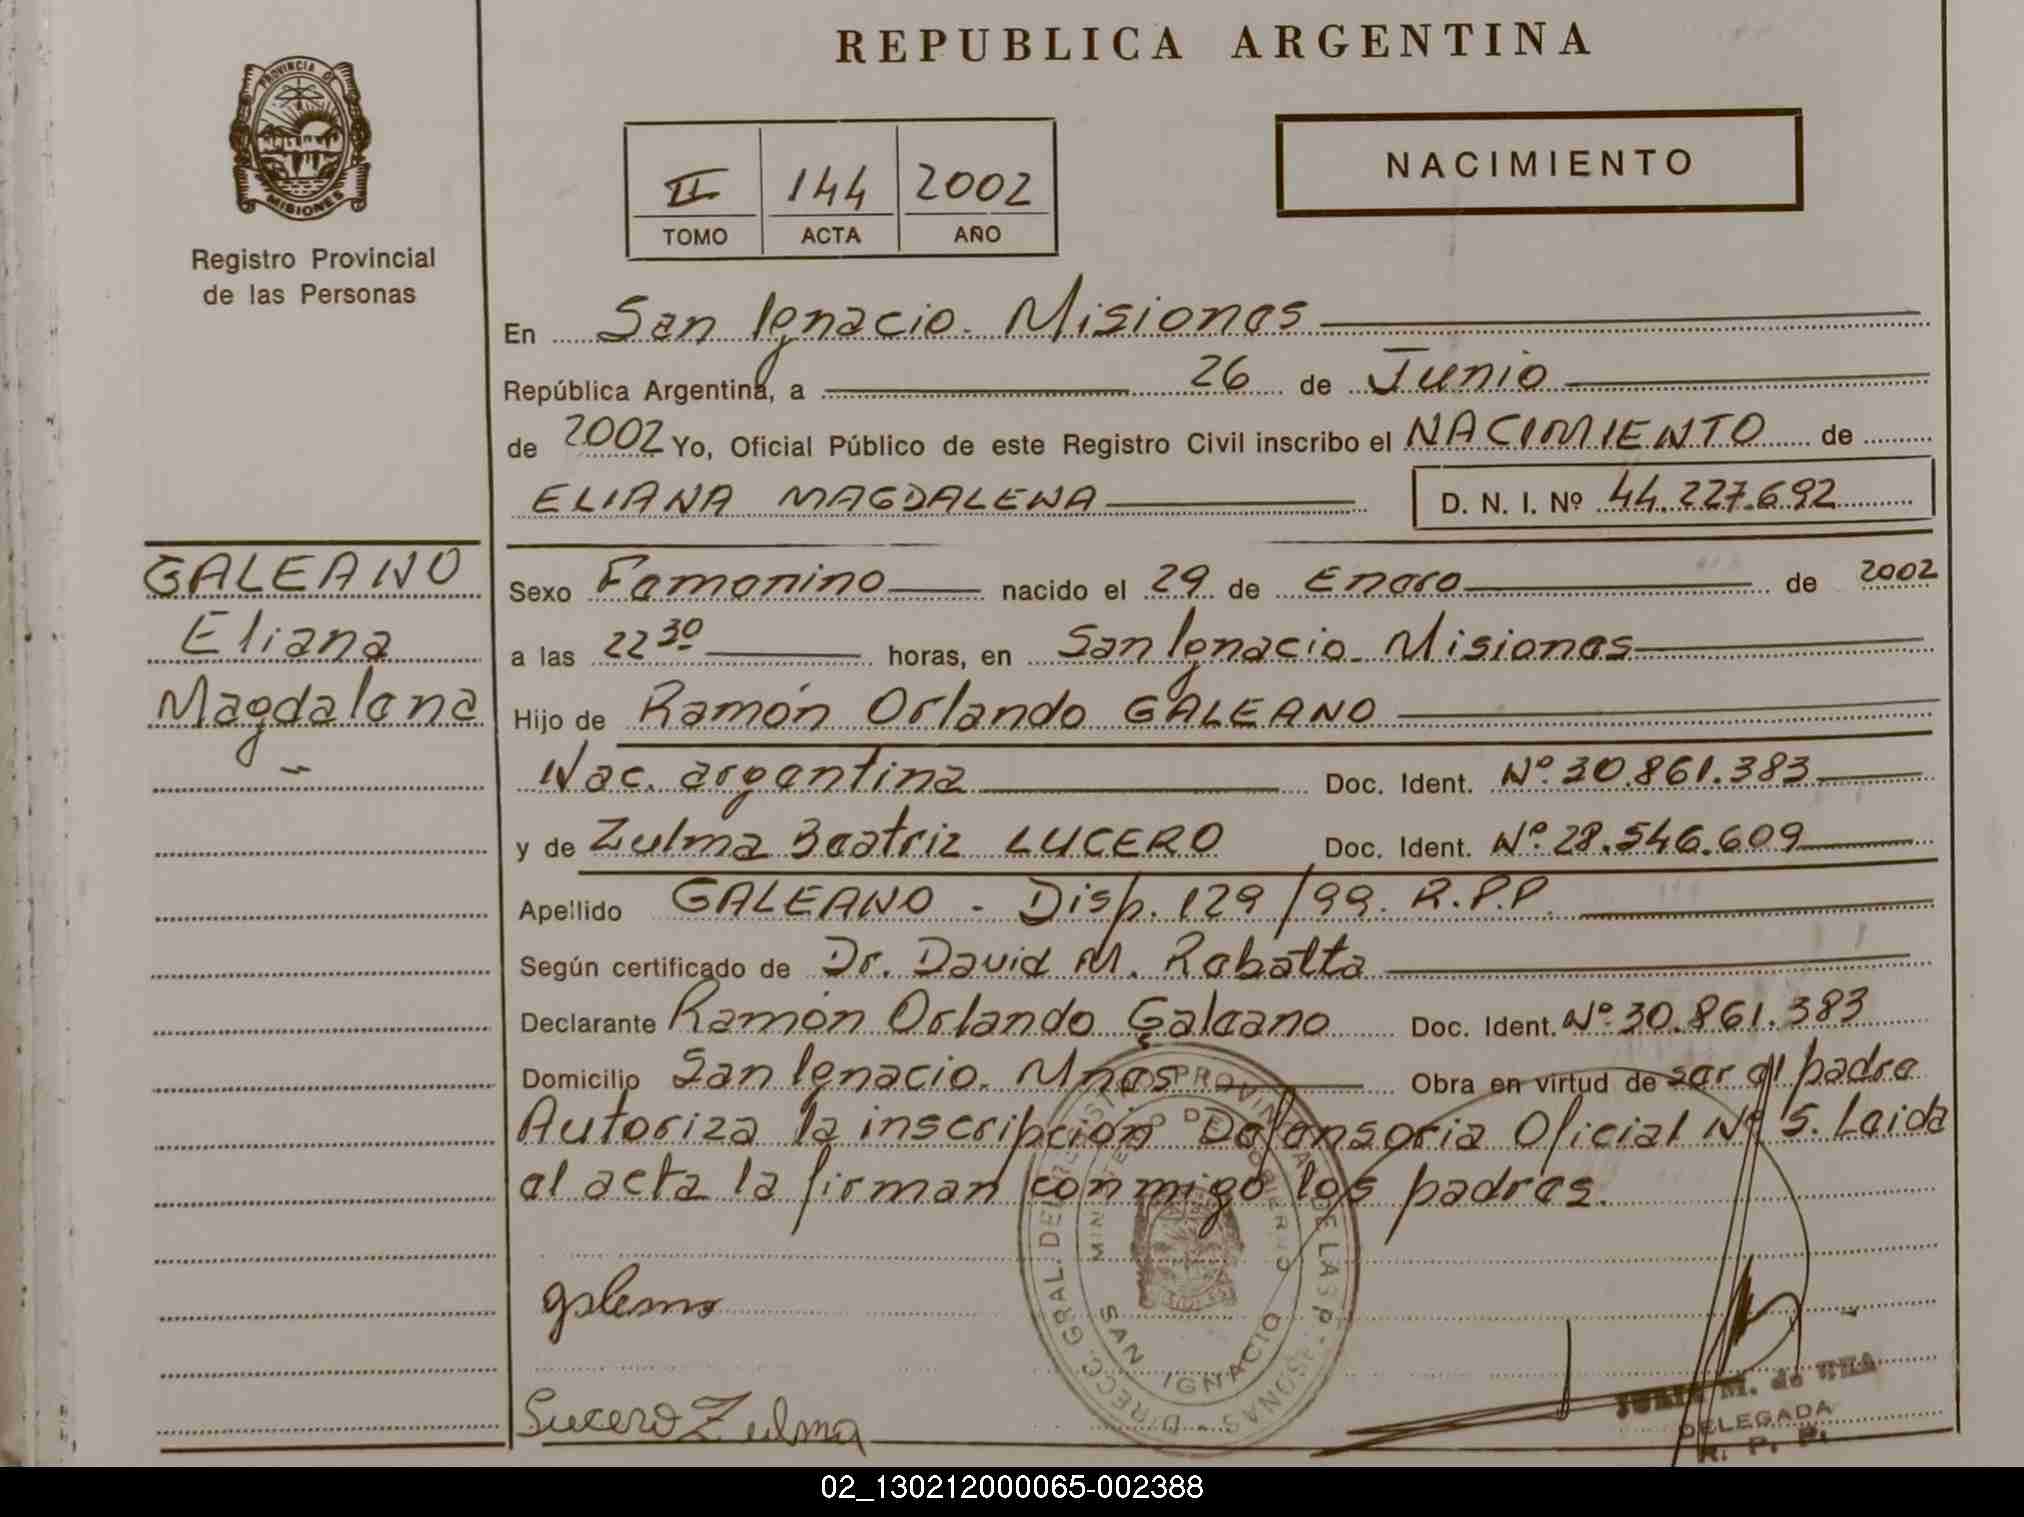 REPUBLICA ARGENTINA
PROVINCIA DE MISIONES
Registro Provincial
de las Personas
II 144 2002
TOMO ACTA AÑO
NACIMIENTO
En San Ignacio. Misiones
República Argentina, a 26 de Junio
de 2002 Yo, Oficial Público de este Registro Civil inscribo el NACIMIENTO de
ELIANA MAGDALENA D. N. I. Nº 44.227.692
GALEANO
Eliana
Magdalena
Sexo Femenino nacido el 29 de Enero de 2002
a las 22 30 horas, en San Ignacio. Misiones
Hijo de Ramón Orlando GALEANO
Nac. argentina Doc. Ident. Nº 30.861.383
y de Zulma Beatriz LUCERO Doc. Ident. Nº 28.546.609
Apellido GALEANO - Disp. 129/99. R.P.P.
Según certificado de Dr. David M. Rebatta
Declarante Ramón Orlando Galeano Doc. Ident. Nº 30.861.383
Domicilio San Ignacio. Mnes Obra en virtud de ser el padre
Autoriza la inscripción Defensoria Oficial Nº 5. Leida
el acta la firman conmigo los padres.
DIRECC. GRAL. DEL REGISTRO PROVINCIAL DE LAS PERSONAS
MINISTERIO DE GOBIERNO
SAN IGNACIO
galeano
Lucero Zulma
M. de
DELEGADA
R. P. P.
02_130212000065-002388